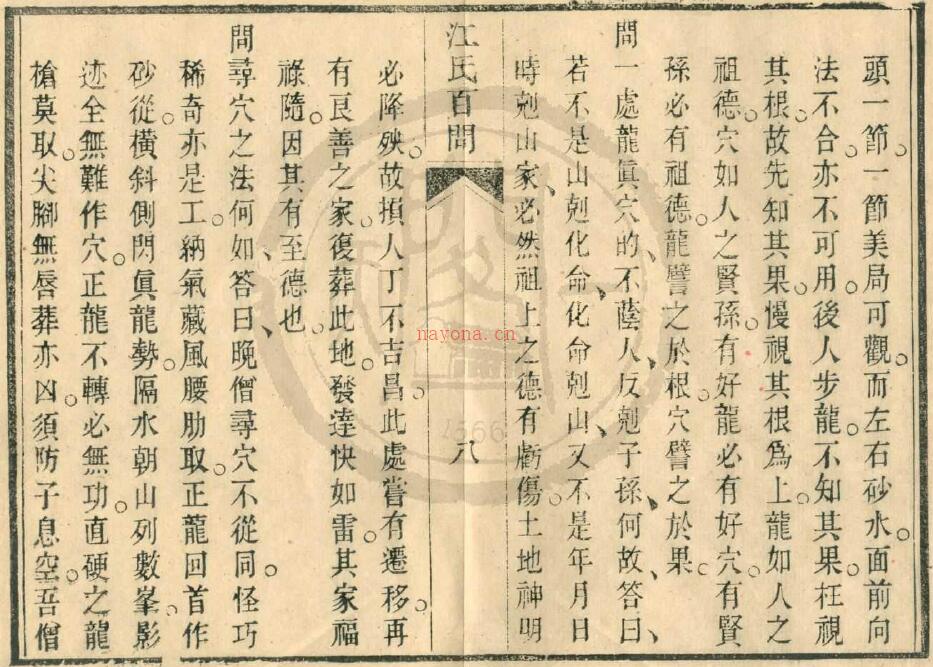 頭一節。一節美局可觀。而左右砂水。面前向
法不合。亦不可用。後人步龍。不知其果。枉視
其根。故先知其果。慢視其根爲上。龍如人之
祖德。穴如人之賢孫。有好龍必有好穴。有賢
孫必有祖德。龍譬之於根。穴譬之於果。
問一處龍眞穴的、不蔭人、反剋子孫、何故、答曰、
若不是山剋化命、化命剋山、又不是年月日
時剋山家、必然祖上之德有虧傷。土地神明
江氏百問
八
必降殃。故損人丁不吉昌。此處嘗有遷移。再
有良善之家。復葬此地。發達快如雷。其家福
祿隨。因其有至德也。
問尋穴之法何如、答曰、晚僧尋穴不從同。怪巧
稀奇亦是工。納氣藏風腰肋取。正龍回首作
砂從。橫斜側閃眞龍勢。隔水朝山列數峯。影
迹全無難作穴。正龍不轉必無功。直硬之龍
槍莫取。尖腳無唇葬亦凶。須防子息空。吾僧
nayona.cn
1566